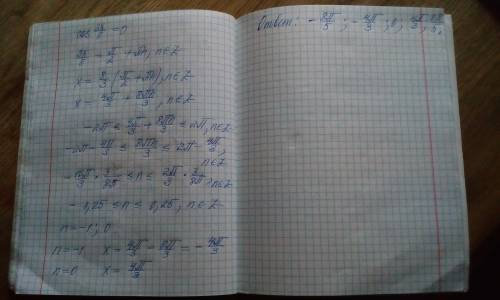 cos 3x/8 = 0
3x/8 = π/2 + πn, n∈Z
x = 8/3 (π/2 + πn), n∈Z
x = 4π/3 + 8πn/3, n∈Z
-2π ≤ 4π/3 + 8πn/3 ≤ 2π, n∈Z
-2π - 4π/3 ≤ 8πn/3 ≤ 2π - 4π/3,
n∈Z
-10π/3 · 3/8π ≤ n ≤ 2π/3 · 3/8π, n∈Z
-1,25 ≤ n ≤ 0,25, n∈Z
n = -1; 0
n = -1 x = 4π/3 - 8π/3 = -4π/3
n = 0 x = 4π/3
Ответ: -8π/3; -4π/3; 0; 4π/3; 8π/3.